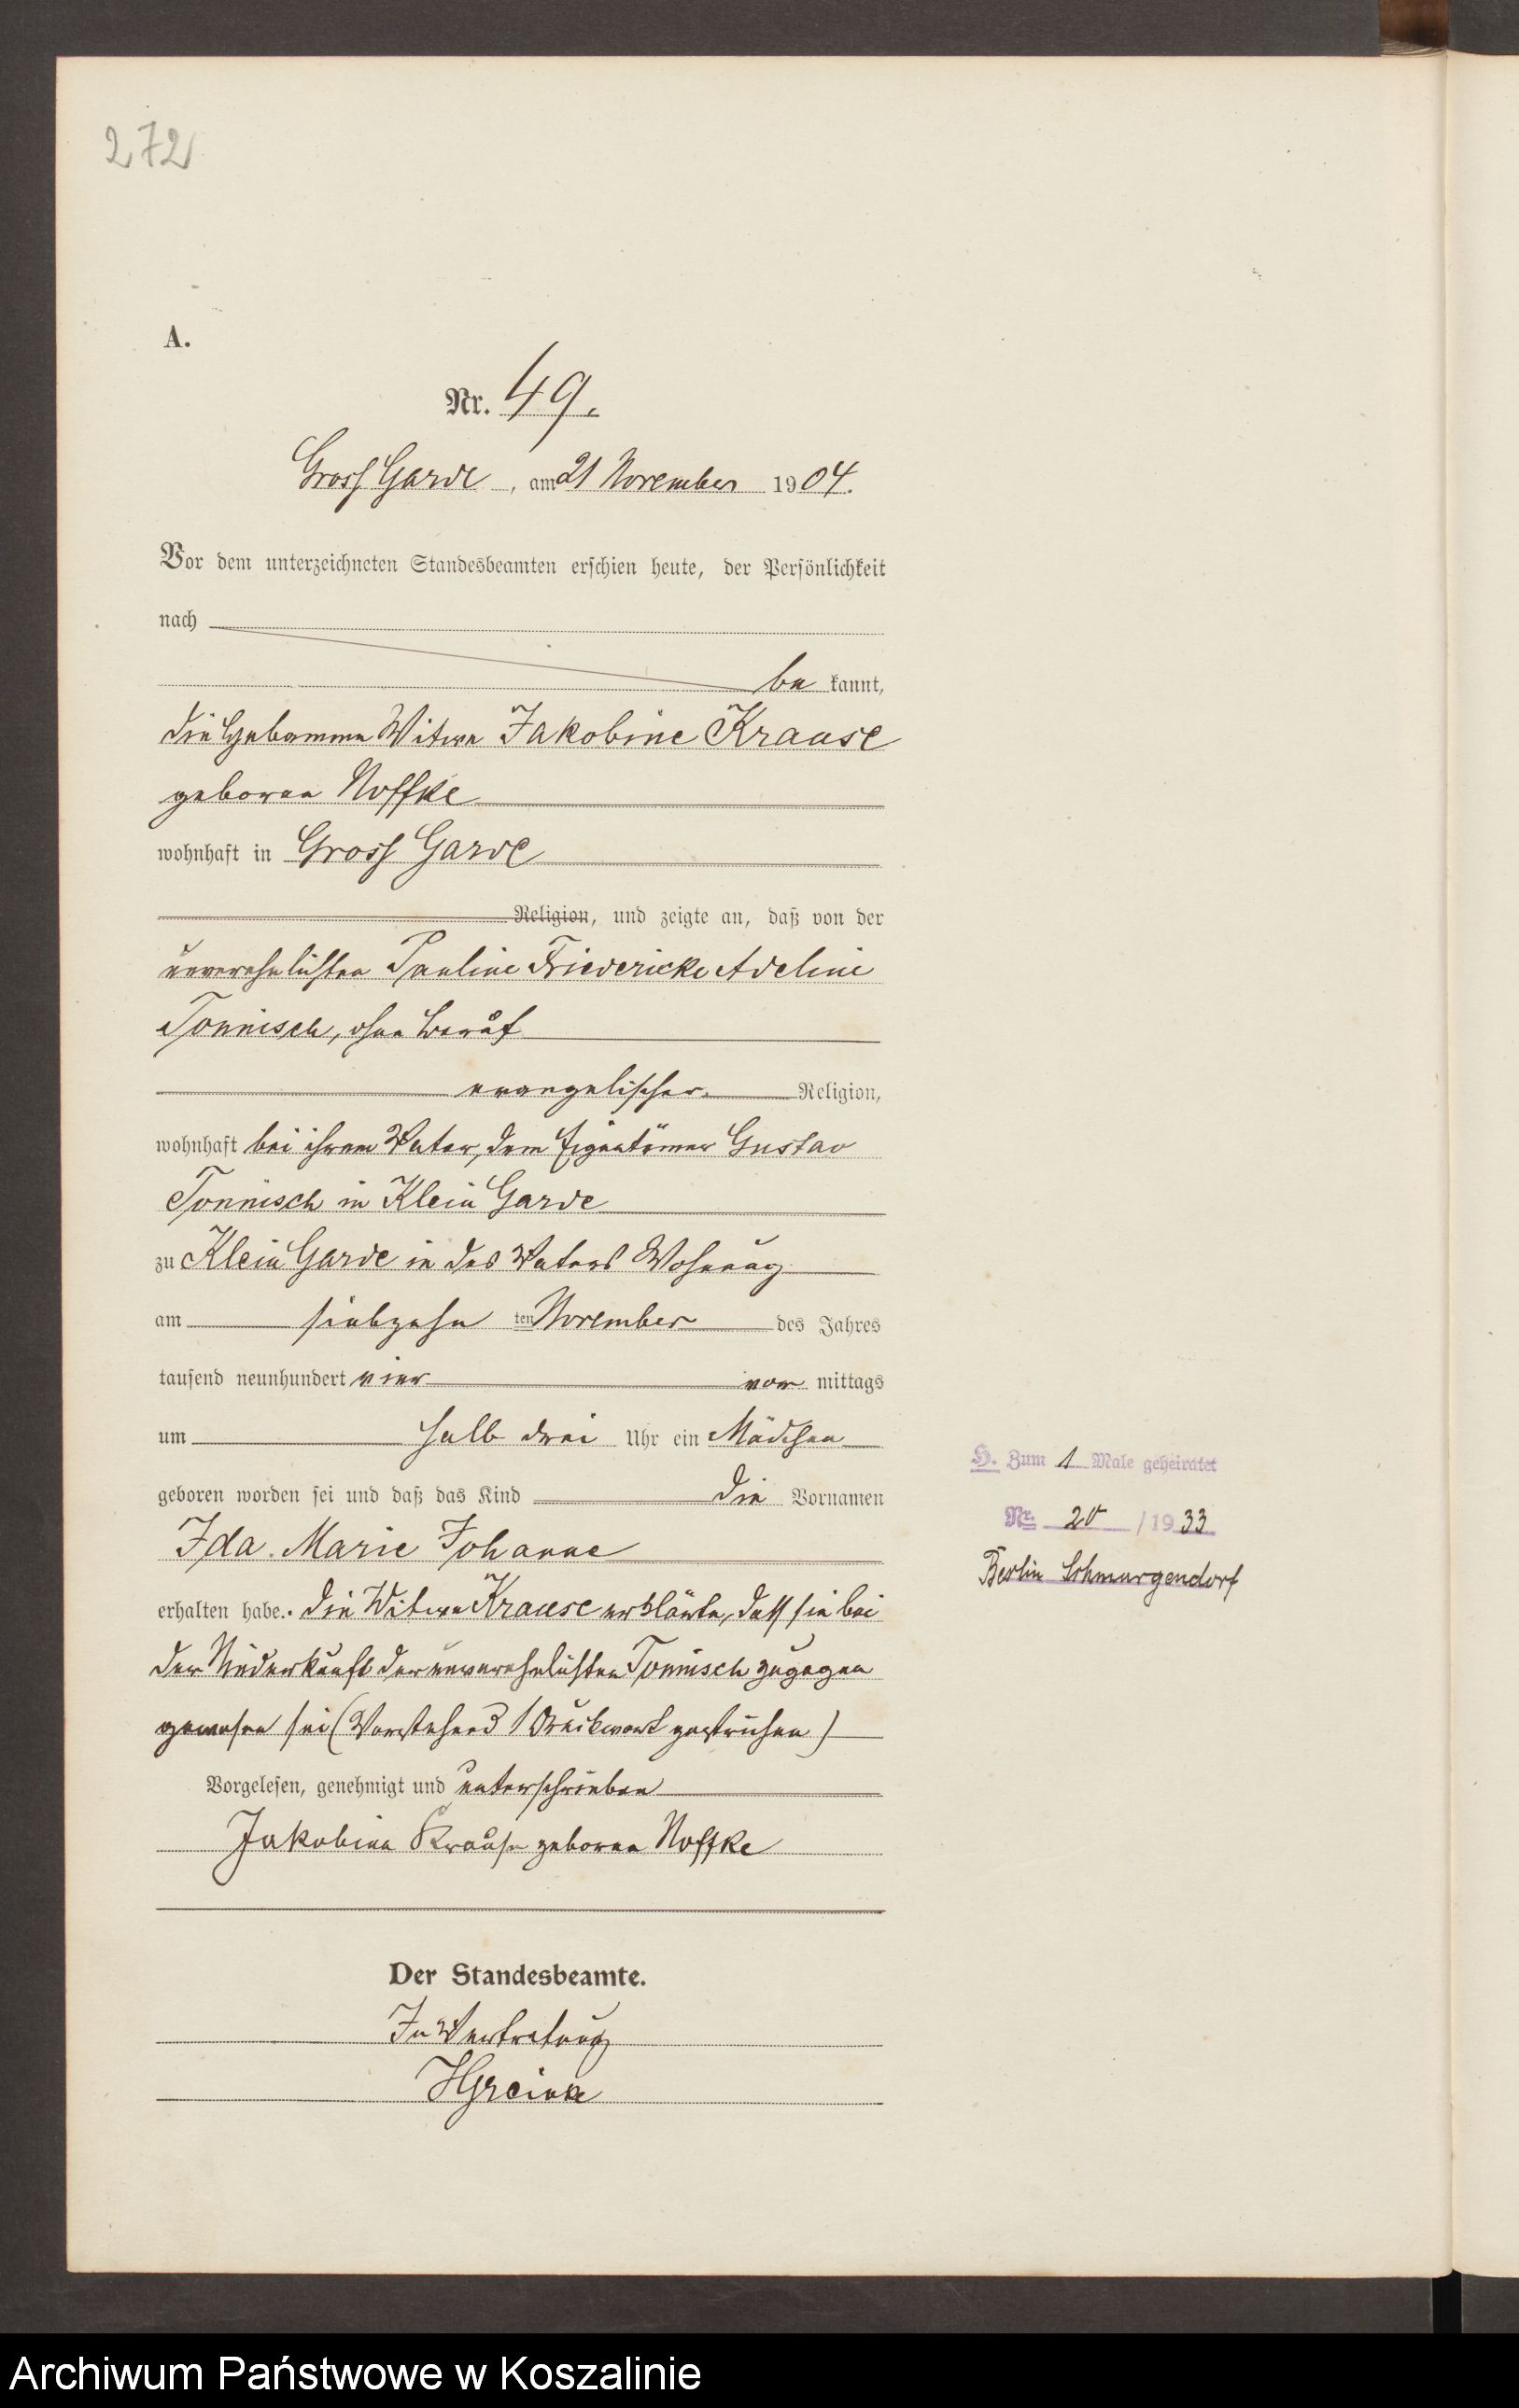 272
A.
Nr. 49.
Gross Garde, am 21 November 1904.
Vor dem unterzeichneten Standesbeamten erschien heute, der Persönlichkeit
nach
be kannt,
die Hebamme Witwe Jakobine Krause
geborene Noffke
wohnhaft in Gross Garde
Religion, und zeigte an, daß von der
unverehelichten Pauline Friedericke Adeline
Tonnisch, ohne Beruf
evangelischer Religion,
wohnhaft bei ihrem Vater, dem Eigentümer Gustav
Tonnisch in Klein Garde
zu Klein Garde in des Vaters Wohnung
am siebzehn ten November des Jahres
tausend neunhundert vier vor mittags
um halb drei Uhr ein Mädchen
geboren worden sei und daß das Kind die Vornamen
Ida Marie Johanne
erhalten habe. Die Witwe Krause erklärte, daß sie bei
der Niederkunft der unverehelichten Tonnisch zugegen
gewesen sei (Vorstehend 1 Druckwort gestrichen)
Vorgelesen, genehmigt und unterschrieben
Jakobine Krause geborene Noffke
Der Standesbeamte.
In Vertretung
H. Zum 1 Male geheiratet
Nr. 20 / 1933
Berlin Schmargendorf
Archiwum Państwowe w Koszalinie